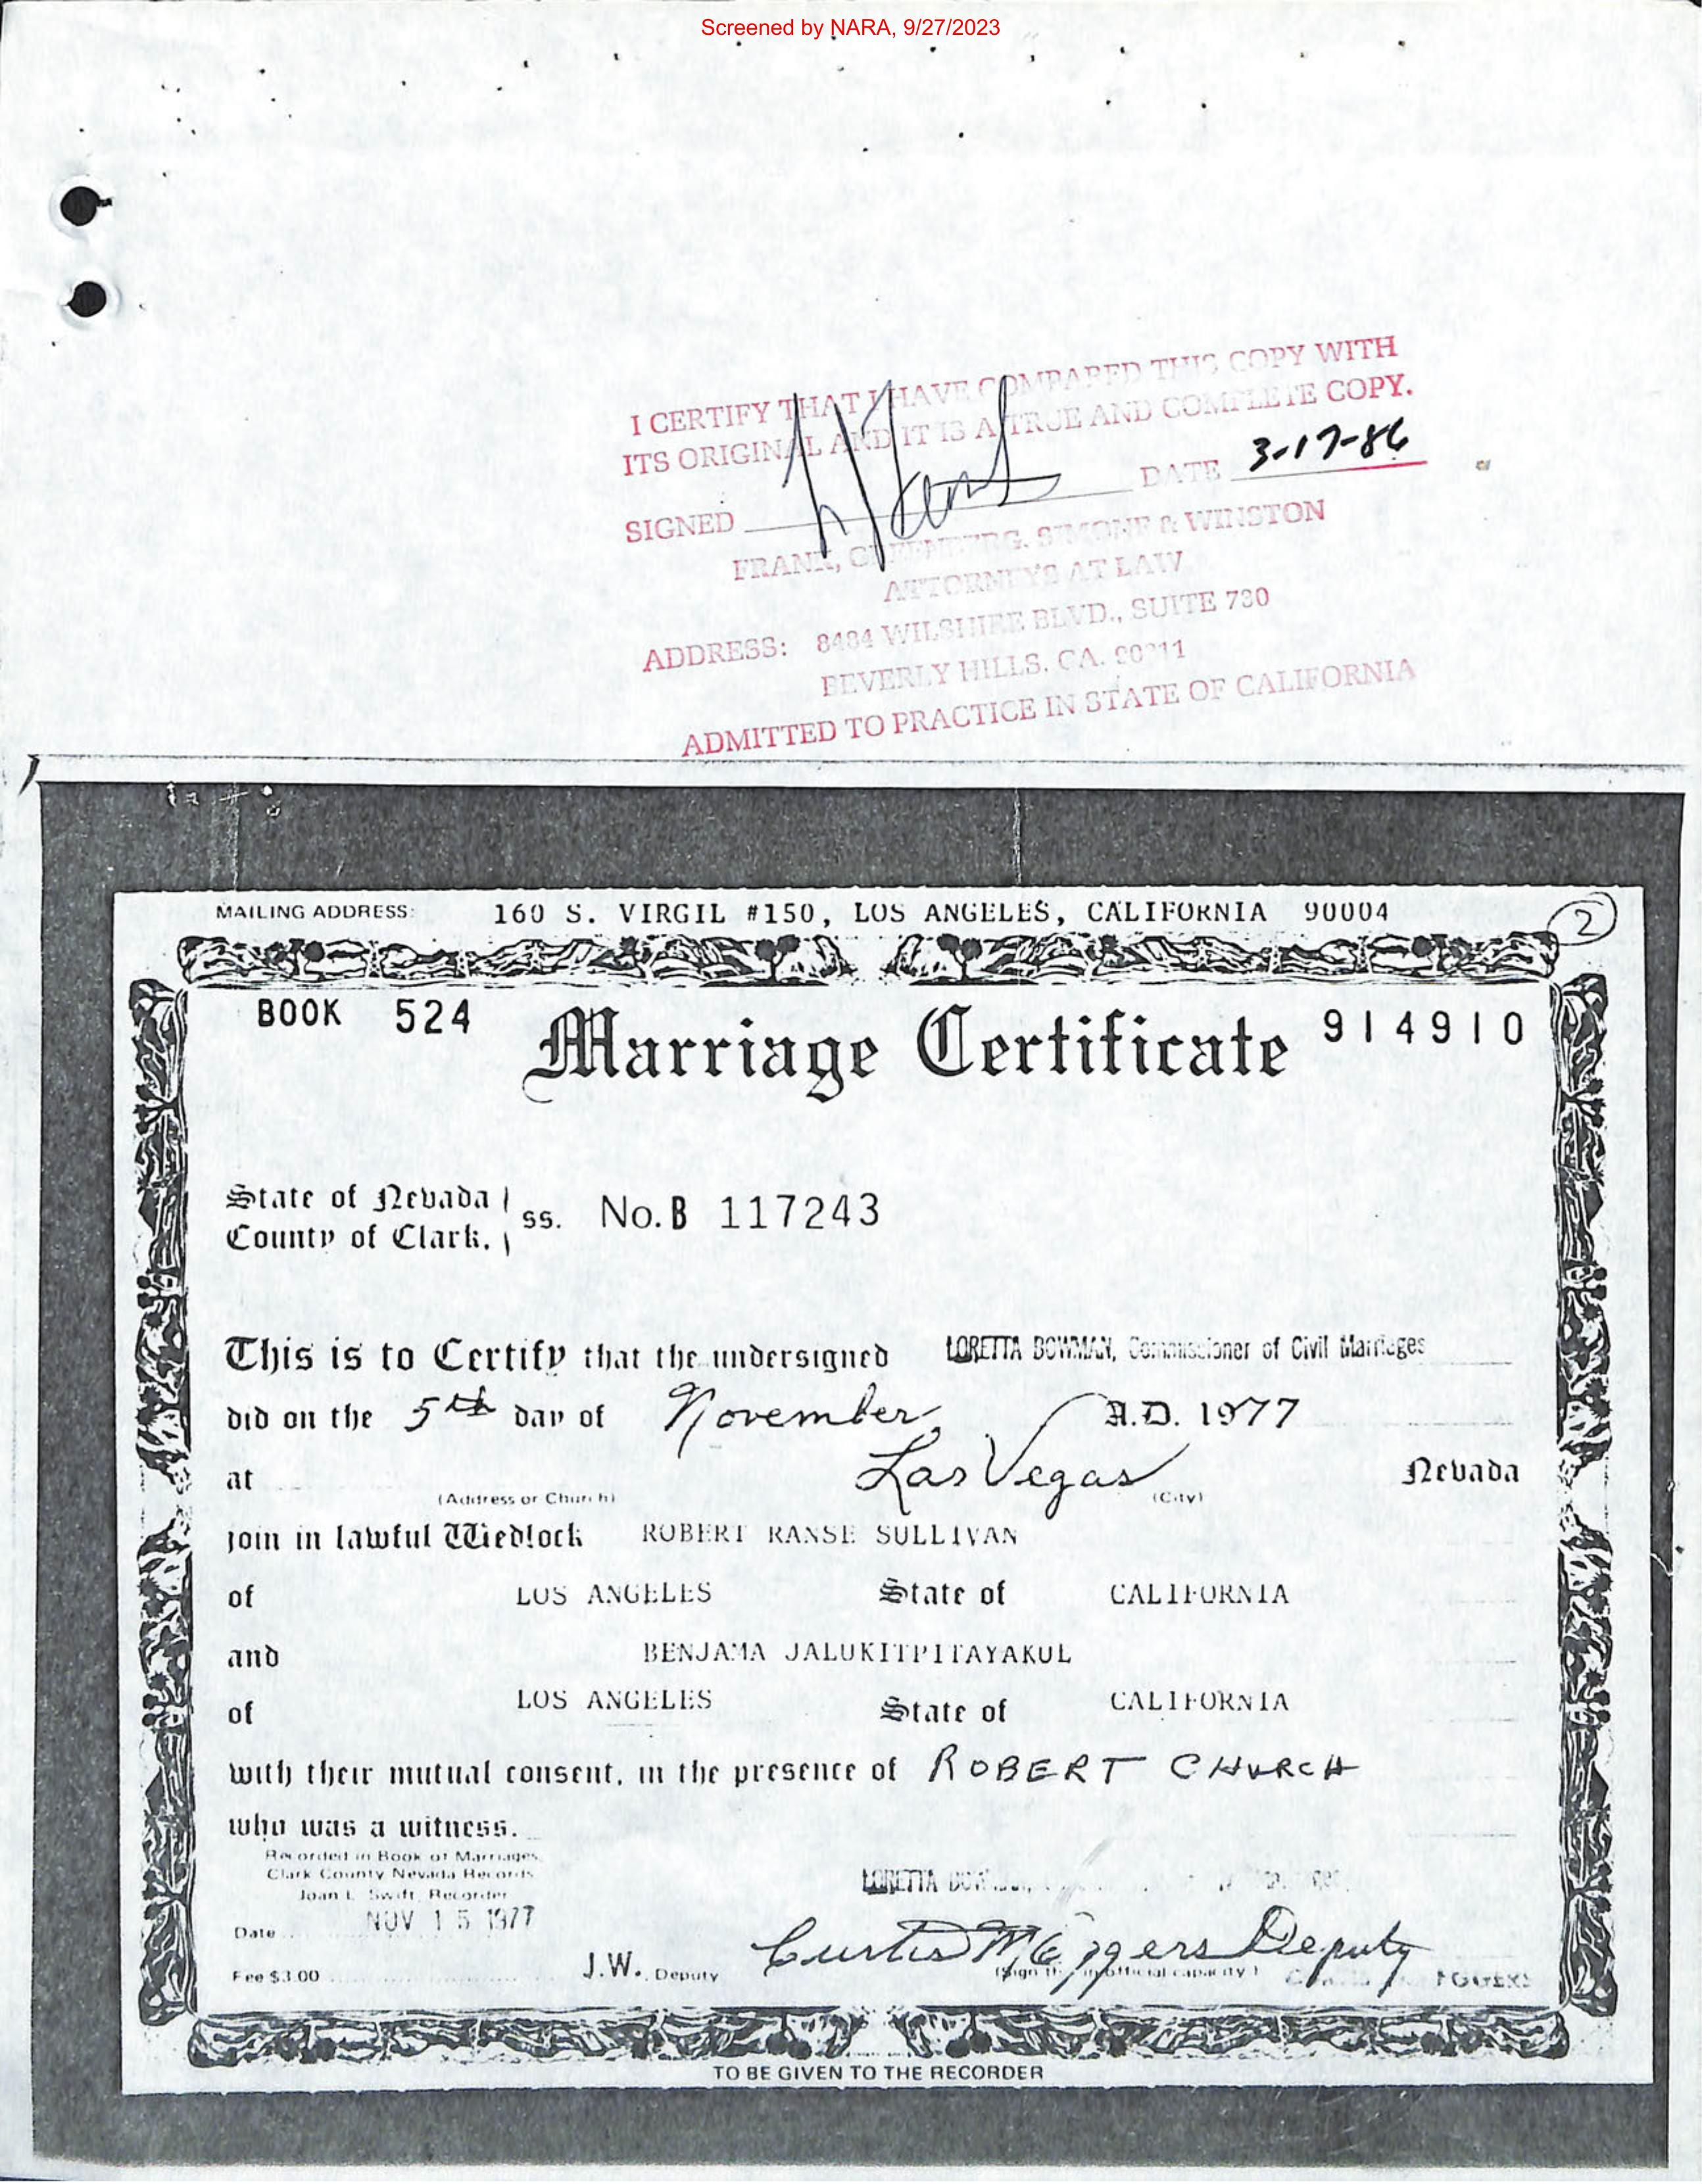 Screened by NARA, 9/27/2023
I CERTIFY THAT I HAVE COMPARED THIS COPY WITH
ITS ORIGINAL AND IT IS A TRUE AND COMPLETE COPY.
SIGNED DATE 3-17-86
FRANK, GREENBERG, SIMONE & WINSTON
ATTORNEYS AT LAW
ADDRESS: 8484 WILSHIRE BLVD., SUITE 730
BEVERLY HILLS, CA. 90211
ADMITTED TO PRACTICE IN STATE OF CALIFORNIA
MAILING ADDRESS: 160 S. VIRGIL #150, LOS ANGELES, CALIFORNIA 90004
2
BOOK 524 Marriage Certificate 914910
State of Nevada
County of Clark, ss. No. B 117243
This is to Certify that the undersigned LORETTA BOWMAN, Commissioner of Civil Marriages
did on the 5th day of November A.D. 1977
at Las Vegas Nevada
(Address or Church) (City)
join in lawful Wedlock ROBERT RANSE SULLIVAN
of LOS ANGELES State of CALIFORNIA
and BENJAMA JALUKITPITAYAKUL
of LOS ANGELES State of CALIFORNIA
with their mutual consent, in the presence of ROBERT CHURCH
who was a witness.
Recorded in Book of Marriages
Clark County Nevada Records
Joan L. Swift, Recorder
LORETTA
Date NOV 15 1977
Curtis M Eggers Deputy
Fee $3.00 J.W. Deputy (Sign in official capacity) EGGERS
TO BE GIVEN TO THE RECORDER